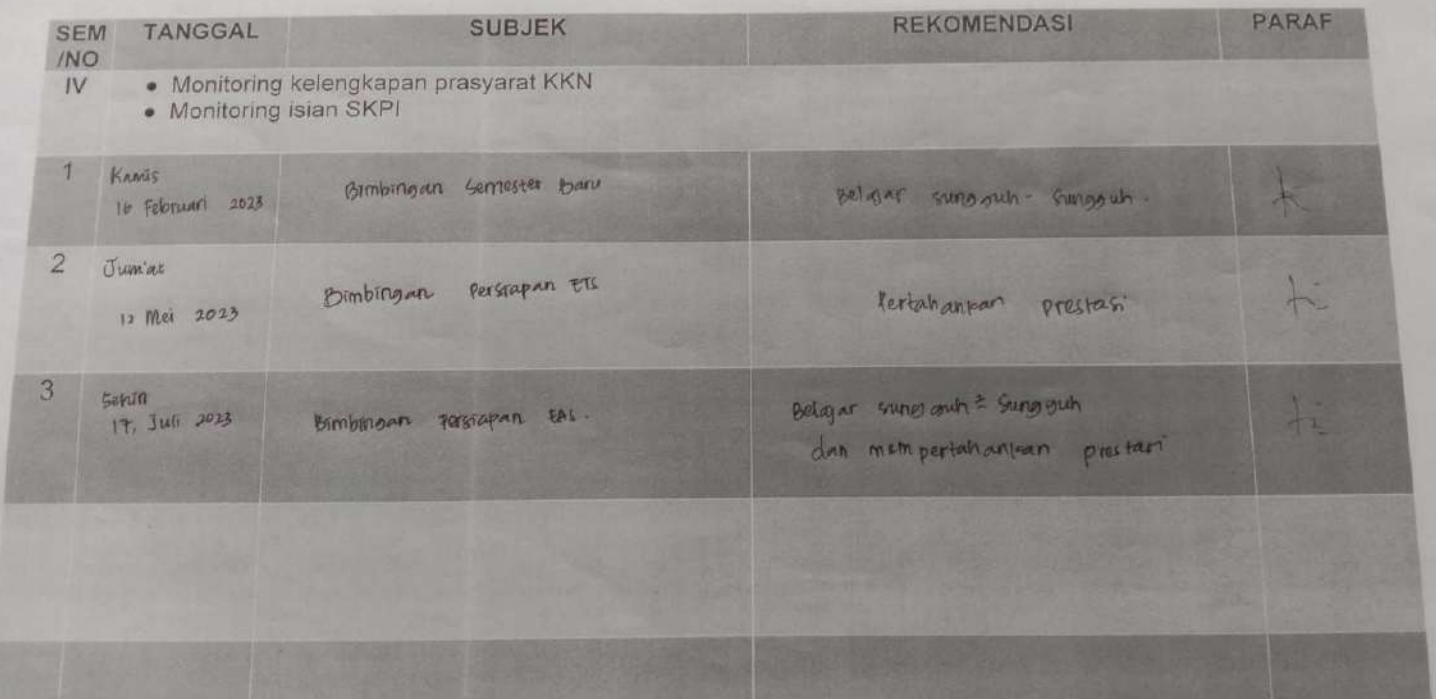 SEM TANGGAL SUBJEK REKOMENDASI PARAF
/NO
IV • Monitoring kelengkapan prasyarat KKN
• Monitoring isian SKPI
1 Kamis
16 Februari 2023 Bimbingan Semester Baru Belajar sungguh - sungguh.
2 Jum'at
12 Mei 2023 Bimbingan Persiapan ETS Pertahankan prestasi
3 Senin
17, Juli 2023 Bimbingan Persiapan EAS. Belajar sungguh = Sungguh
dan mempertahankan prestasi